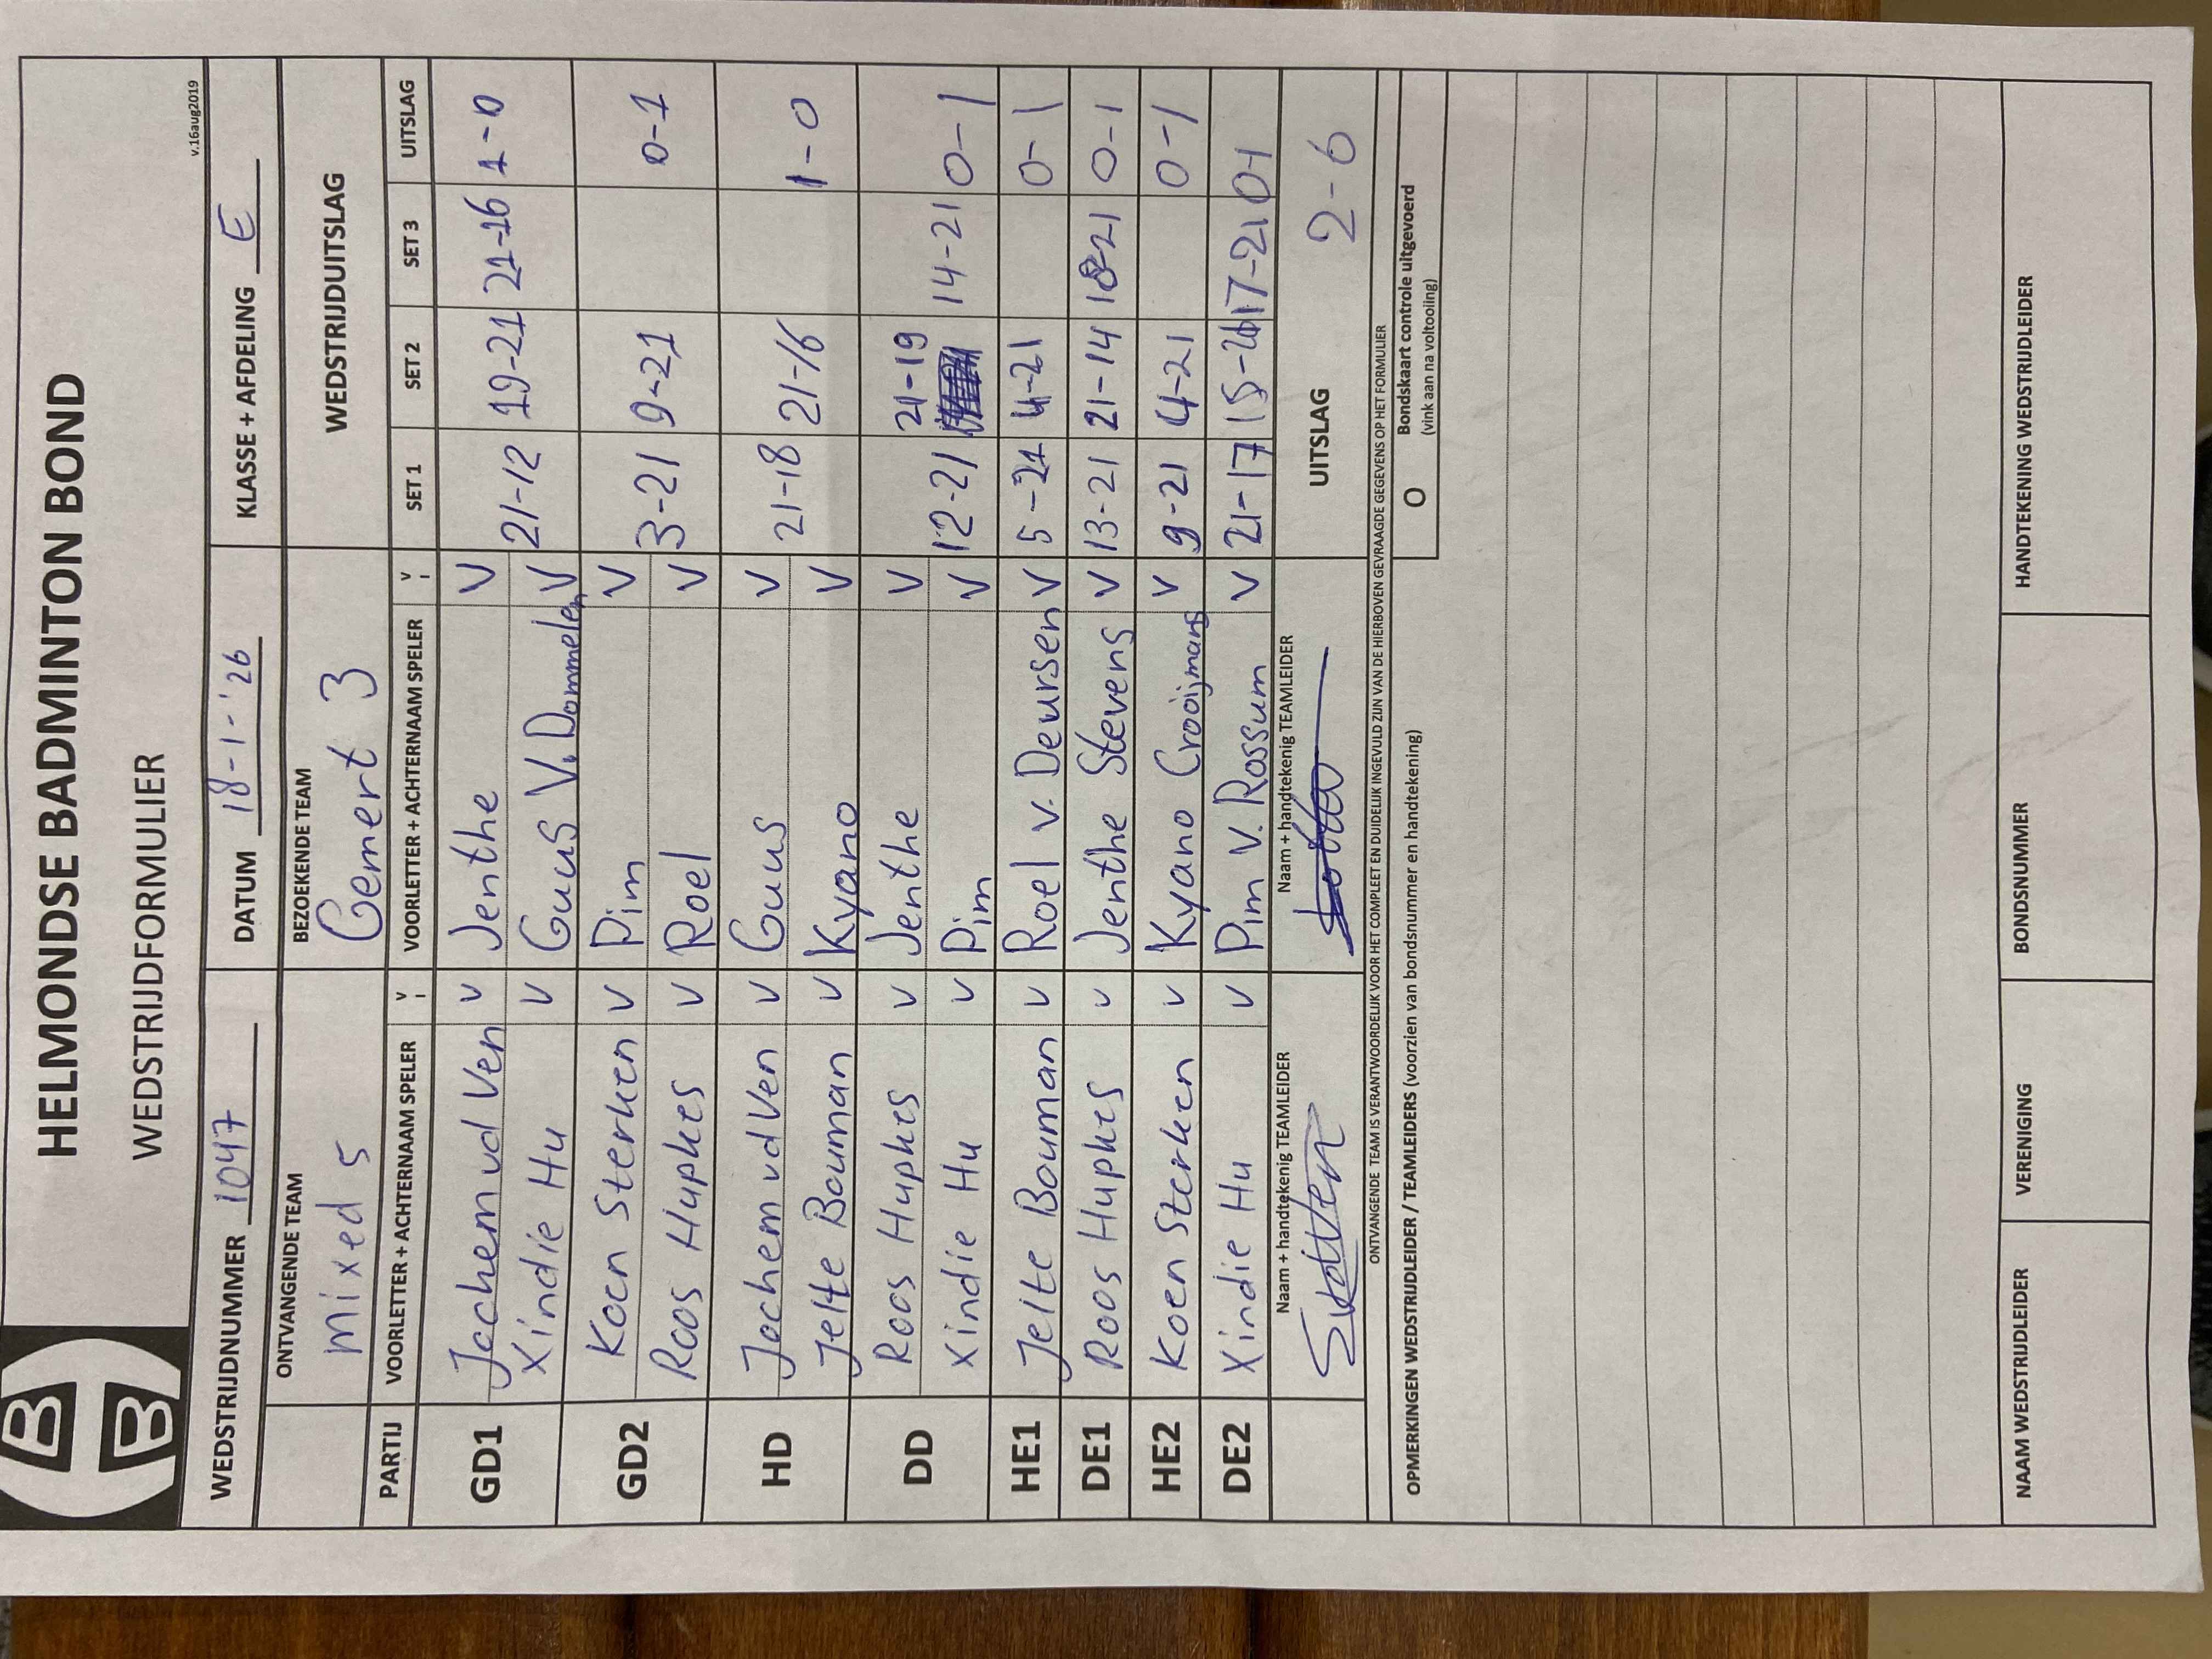 HELMONDSE BADMINTON BOND
WEDSTRIJDFORMULIER
v.16aug2019
WEDSTRIJDNUMMER 1047 DATUM 18-1-'26 KLASSE + AFDELING E
ONTVANGENDE TEAM BEZOEKENDE TEAM WEDSTRIJDUITSLAG
Mixed 5 Gemert 3
PARTIJ VOORLETTER + ACHTERNAAM SPELER V VOORLETTER + ACHTERNAAM SPELER V SET 1 SET 2 SET 3 UITSLAG
GD1 Jochem vd Ven V Jenthe V
Xindie Hu V Guus V. Dommelen V 21-12 19-21 21-16 1-0
GD2 Koen Sterken V Pim V
Roos Huphes V Roel V 3-21 9-21 0-1
HD Jochem vd Ven V Guus V
Jelte Bouman V Kyano V 21-18 21-16 1-0
DD Roos Huphes V Jenthe V 21-19
Xindie Hu V Pim V 12-21 14-21 0-1
HE1 Jelte Bouman V Roel v. Deursen V 5-21 4-21 0-1
DE1 Roos Huphes V Jenthe Stevens V 13-21 21-14 18-21 0-1
HE2 Koen Sterken V Kyano Crooijmans V 9-21 4-21 0-1
DE2 Xindie Hu V Pim V. Rossum V 21-17 15-21 17-21 0-1
Naam + handtekenig TEAMLEIDER Naam + handtekenig TEAMLEIDER UITSLAG 2-6
ONTVANGENDE TEAM IS VERANTWOORDELIJK VOOR HET COMPLEET EN DUIDELIJK INGEVULD ZIJN VAN DE HIERBOVEN GEVRAAGDE GEGEVENS OP HET FORMULIER
OPMERKINGEN WEDSTRIJDLEIDER / TEAMLEIDERS (voorzien van bondsnummer en handtekening)
O Bondskaart controle uitgevoerd
(vink aan na voltooiing)
NAAM WEDSTRIJDLEIDER VERENIGING BONDSNUMMER HANDTEKENING WEDSTRIJDLEIDER